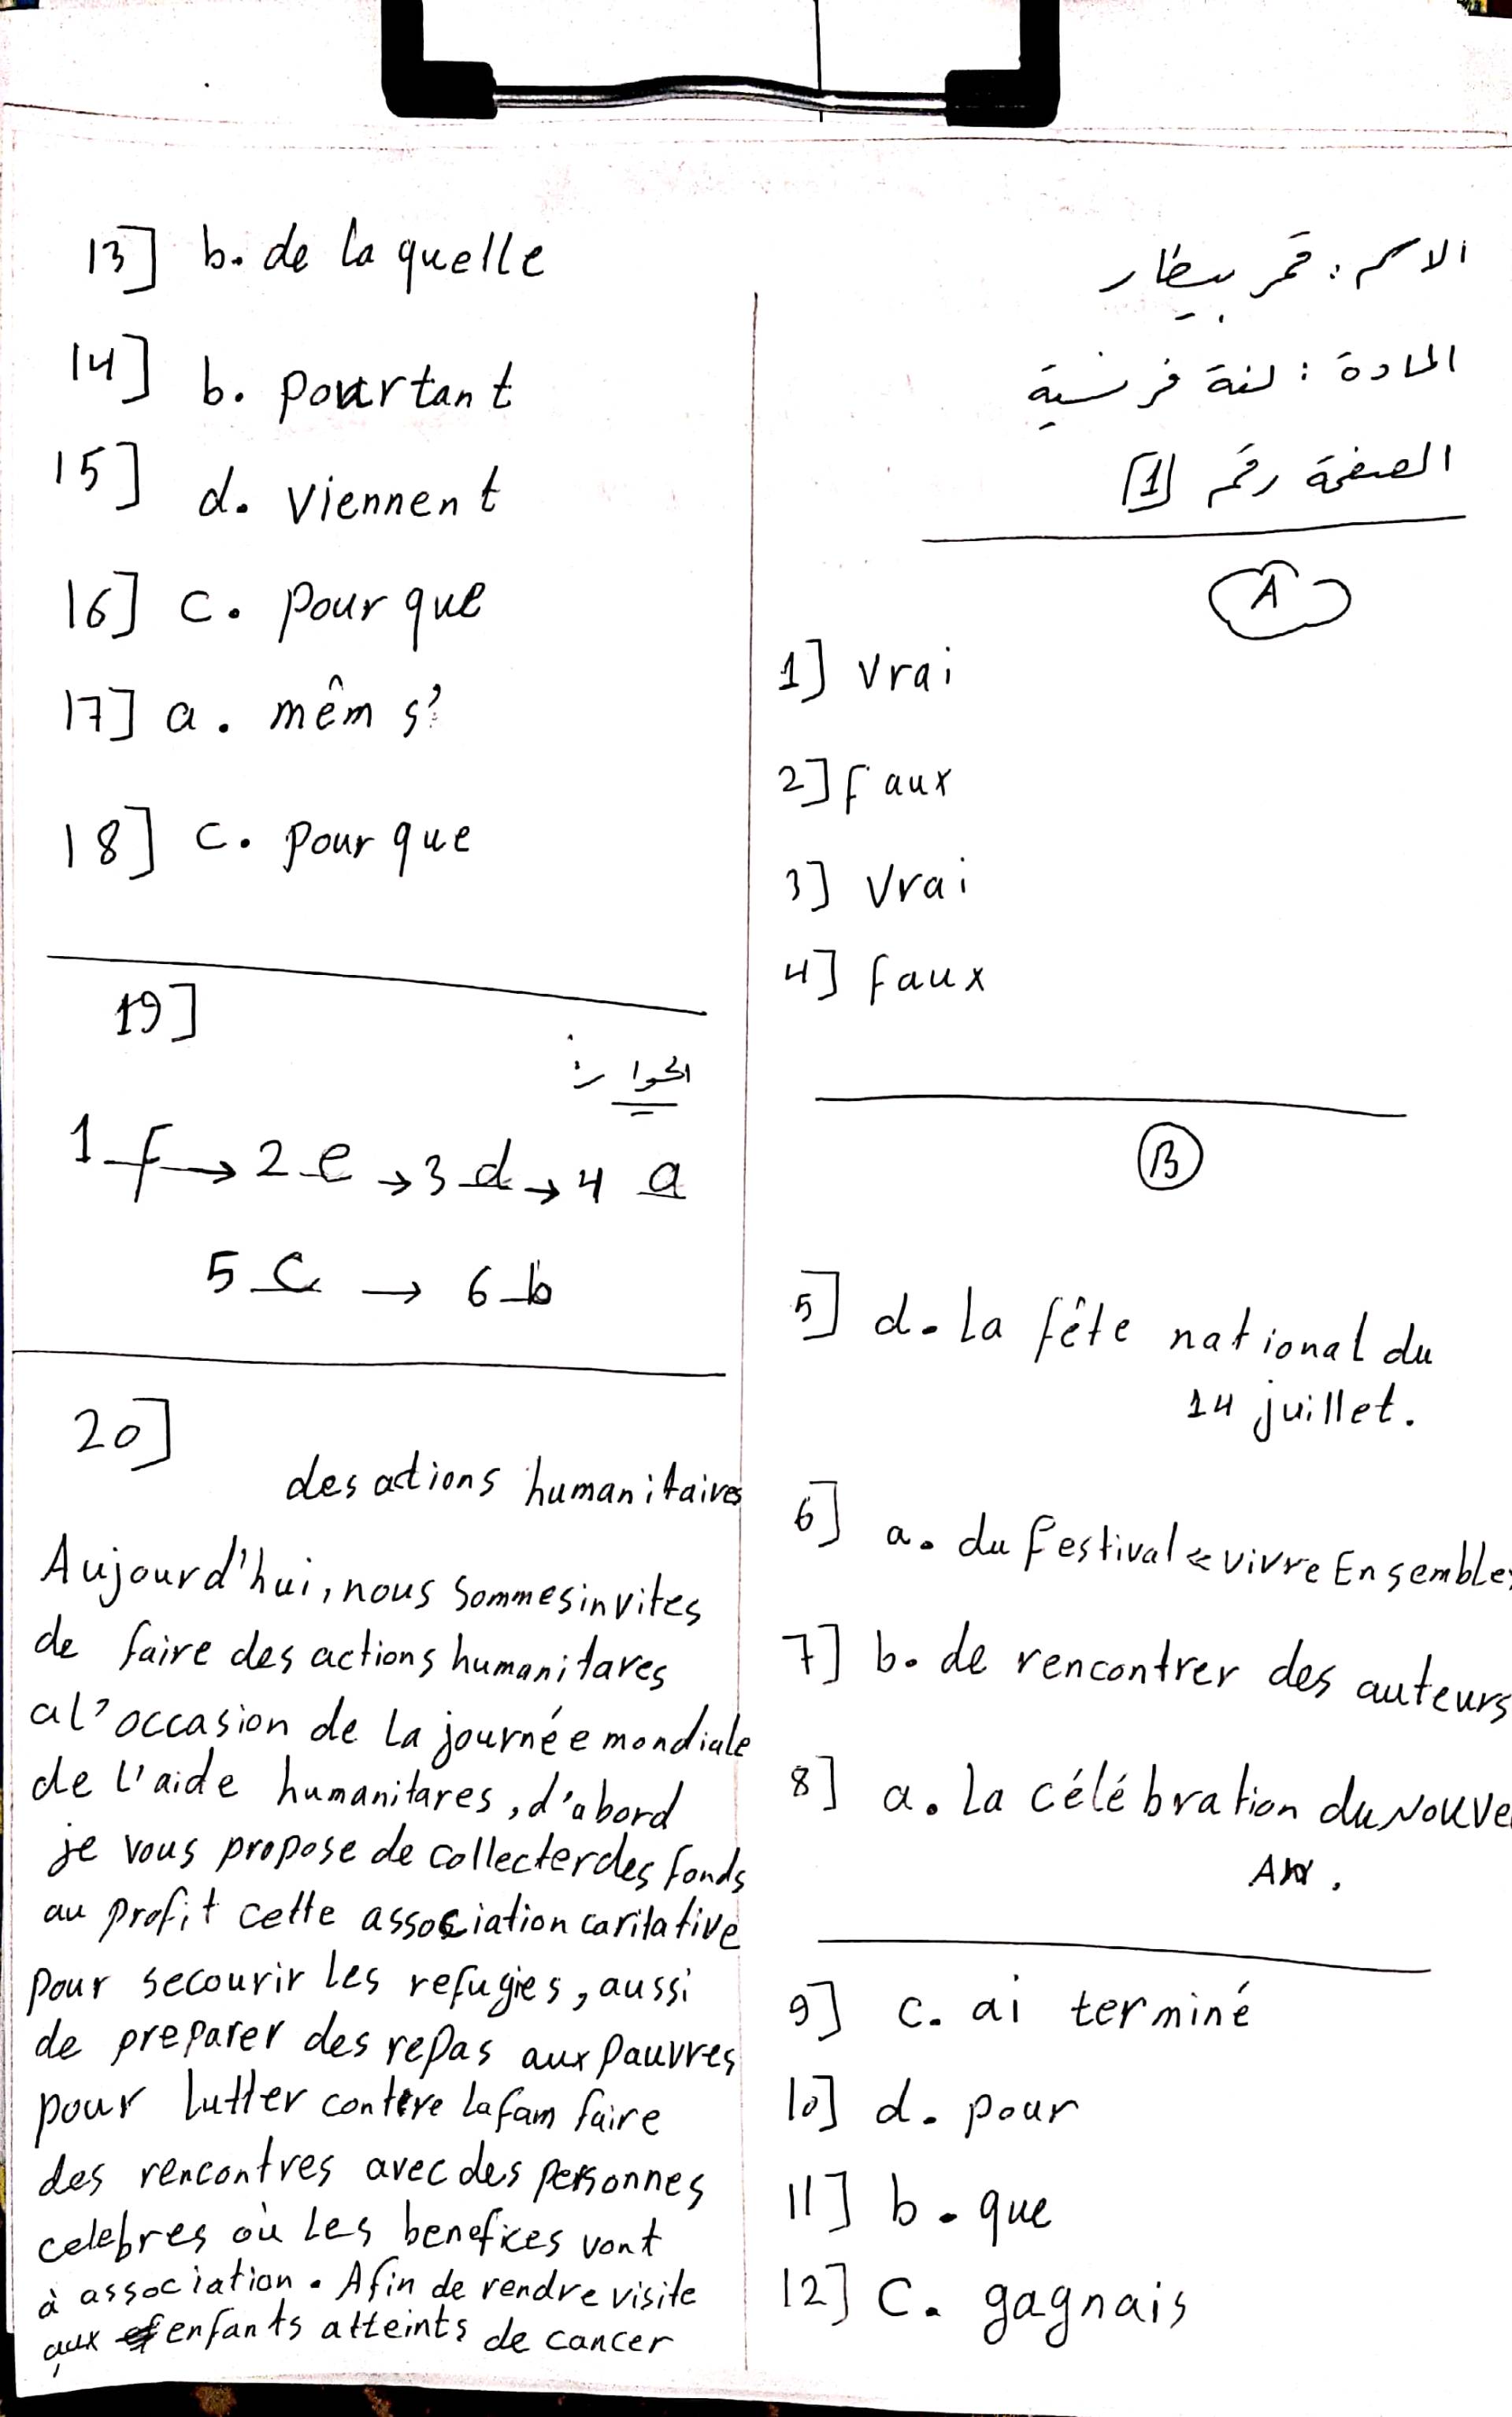 الاسم : قمر بيطار
المادة : لغة فرنسية
الصفحة رقم [1]
A
1] vrai
2] faux
3] vrai
4] faux
B
5] d. La fête national du
14 juillet.
6] a. du festival « vivre Ensemble
7] b. de rencontrer des auteurs
8] a. La célébration du Nouve
AN.
9] c. ai terminé
10] d. pour
11] b. que
12] C. gagnais
13] b. de la quelle
14] b. pourtant
15] d. viennent
16] c. pour que
17] a. mêm s'
18] c. pour que
19]
الحوار :
1 f → 2 e → 3 d → 4 a
5 c → 6 b
20]
des actions humanitaires
Aujourd'hui, nous sommes invites
de faire des actions humanitares
a l'occasion de la journée mondiale
de l'aide humanitares, d'abord
je vous propose de collecter des fonds
au profit cette association caritative
pour secourir les refugies, aussi
de preparer des repas aux pauvres
pour lutter contre la fam faire
des rencontres avec des personnes
celebres où les benefices vont
à association. Afin de rendre visite
aux enfants atteints de cancer